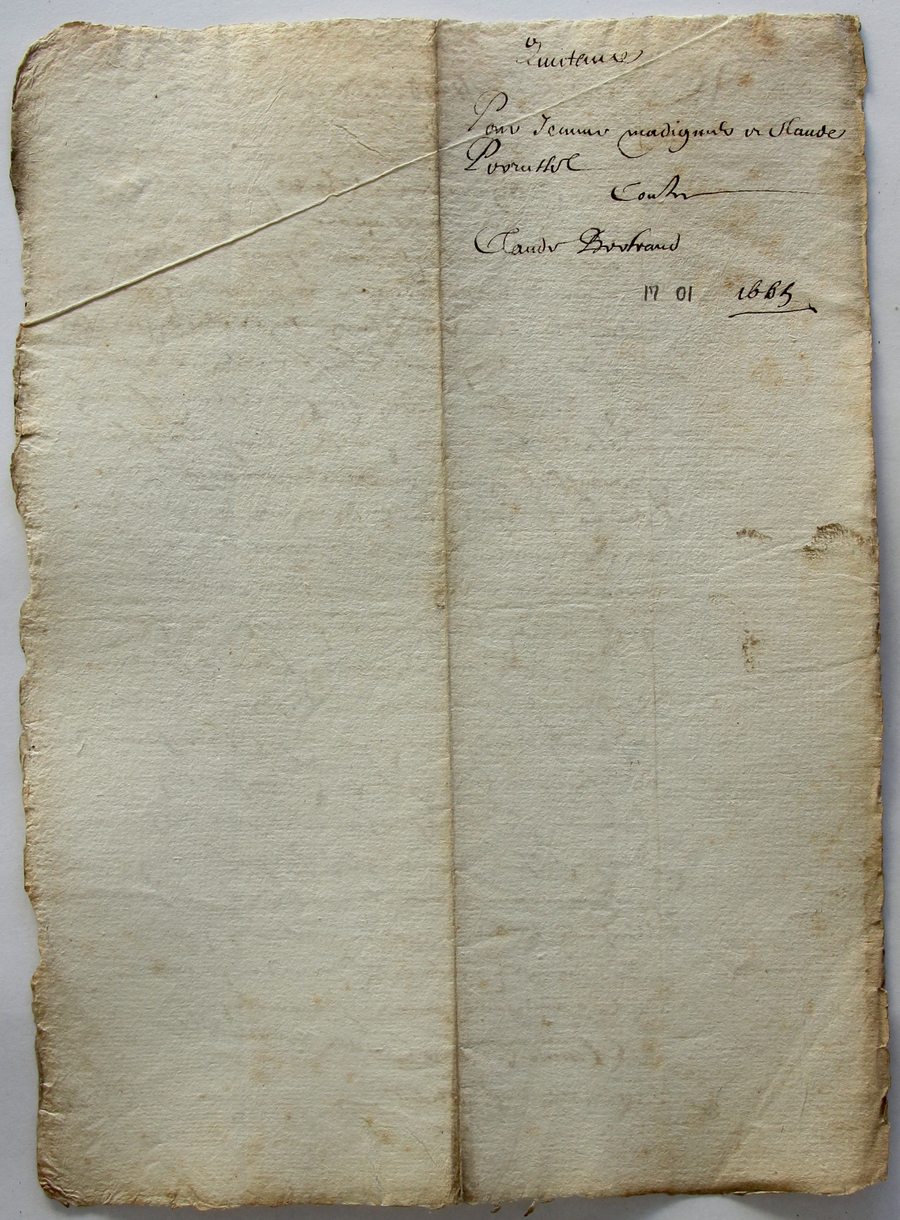 Quitance
Pour Jeanne madignier et Claude
Contre
Claude Bertrand
17 01 1665